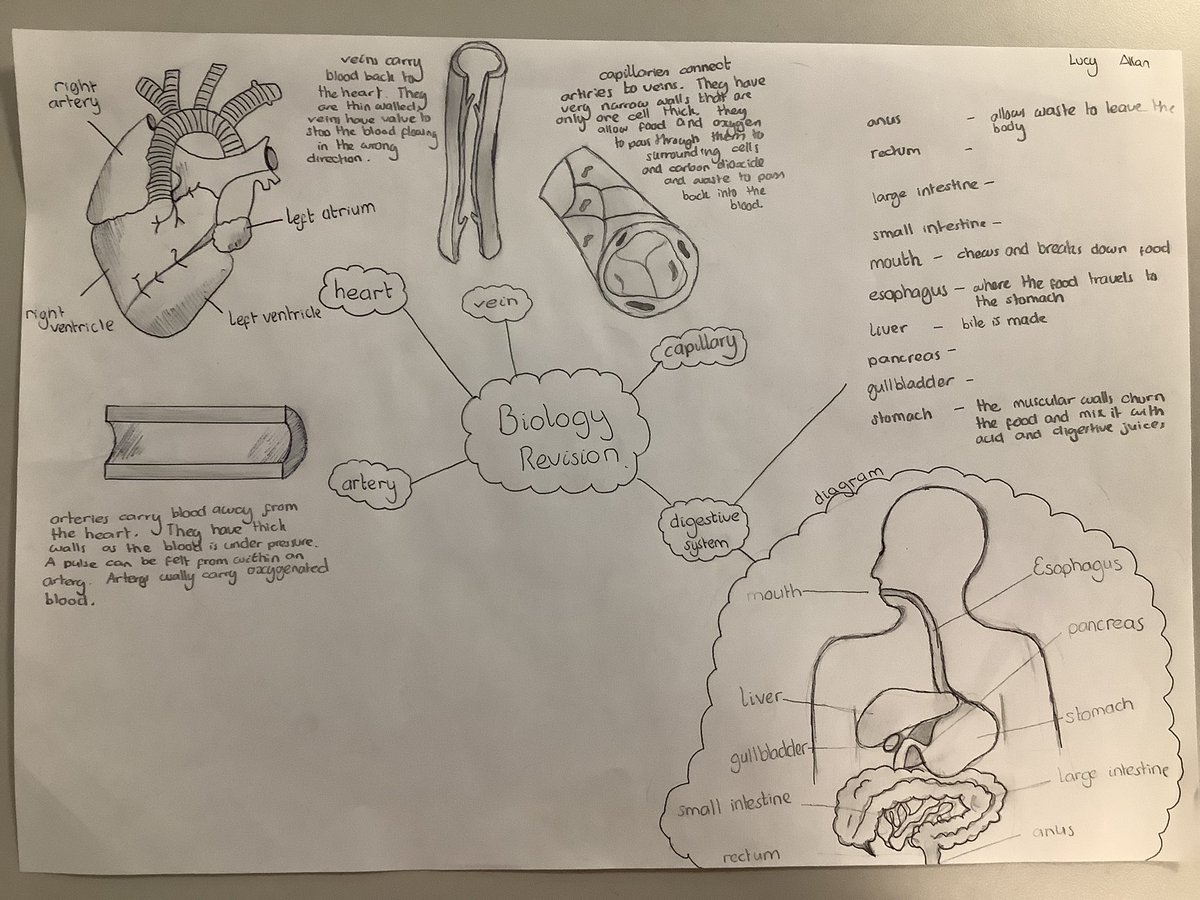 Lucy Allan
right
artery
left atrium
right
ventricle
left ventricle
veins carry
blood back to
the heart. They
are thin walled
veins have valve to
stop the blood flowing
in the wrong
direction.
capillaries connect
artiries to veins. They have
very narrow walls that are
only one cell thick. they
allow food and oxygen
to pass through them to
surrounding cells
and carbon dioxide
and waste to pass
back into the
blood.
heart
vein
capillary
Biology
Revision.
artery
digestive
system
arteries carry blood away from
the heart. They have thick
walls as the blood is under pressure.
A pulse can be felt from within an
artery. Arterys ually carry oxygenated
blood.
anus - allows waste to leave the
body
rectum -
large intestine -
small intestine -
mouth - chews and breaks down food
esophagus - where the food travels to
the stomach
liver - bile is made
pancreas -
gullbladder -
stomach - the muscular walls churn
the food and mix it with
acid and digestive juices
diagram
mouth
Esophagus
pancreas
liver
stomach
gullbladder
large intestine
small intestine
anus
rectum